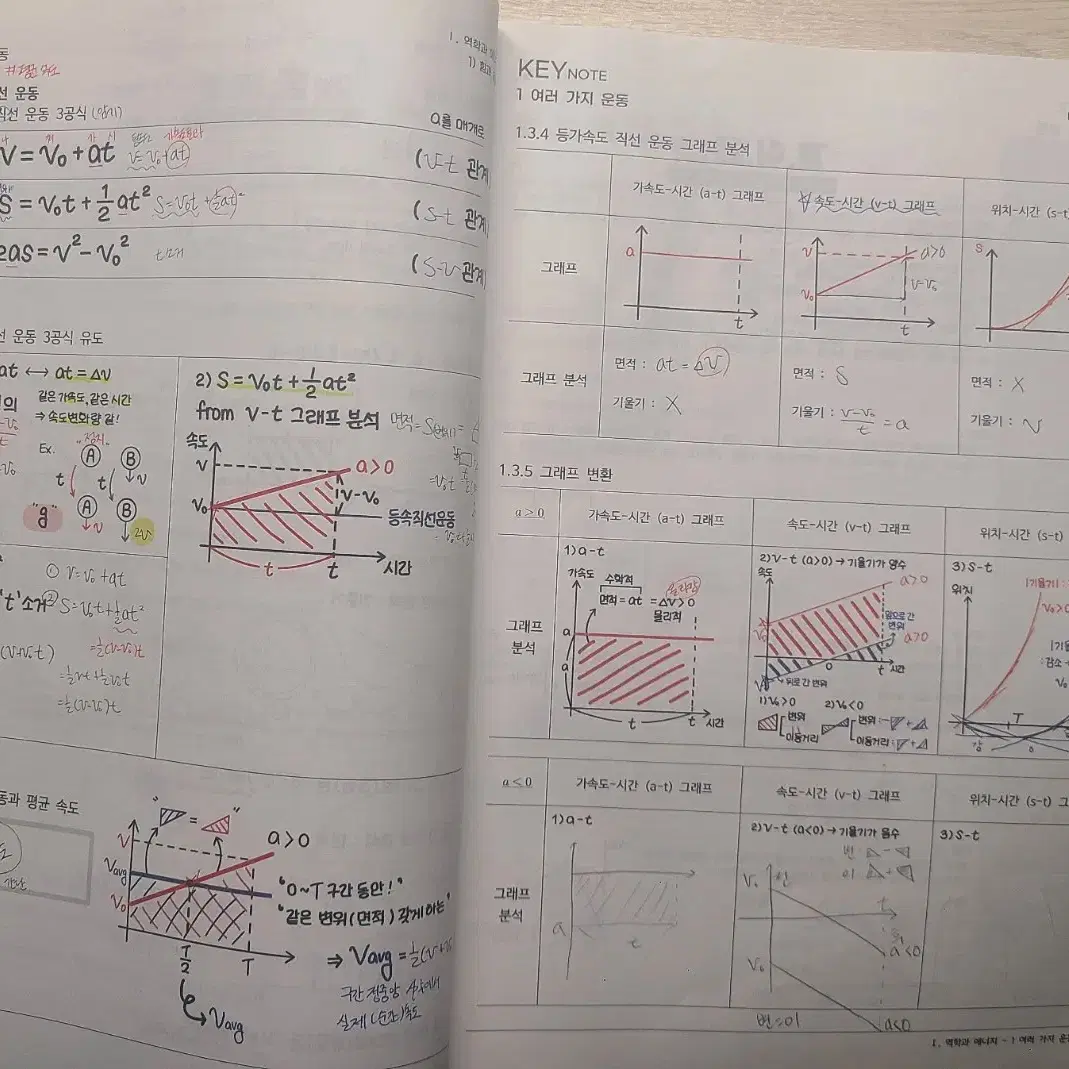 동
선 운동
직선 운동 3공식 (암기)
a를 매개로
V = V₀ + at
V = V₀ + at
(v-t 관계
S = V₀t + ½at²
S = V₀t + ½at²
(s-t 관계
2as = V² - V₀²
t소거
(s-v 관계
선 운동 3공식 유도
at ↔ at = ΔV
같은 가속도, 같은 시간
⇒ 속도변화량 같!
Ex.
"정지"
A B
t t v
A B
"g" v 2v
① V = V₀ + at
't' 소거 ② S = V₀t + ½at²
= ½(V-V₀)t
= ½Vt + ½V₀t
2) S = V₀t + ½at²
from V-t 그래프 분석
면적 =
속도
V
a>0
V-V₀
V₀
등속직선운동
t t 시간
동과 평균 속도
" = "
V
a>0
Vavg
V₀
T/2 T
Vavg
"0~T 구간 동안!"
"같은 변위(면적) 갖게 하는"
⇒ Vavg = ½(V+
구간 정중앙 시각에서
실제(순간)속도
1. 역학과
1) 힘과
KEY NOTE
1 여러 가지 운동
1.3.4 등가속도 직선 운동 그래프 분석
가속도-시간 (a-t) 그래프
속도-시간 (v-t) 그래프
위치-시간 (s-t)
그래프
a
t
V
a>0
V-V₀
V₀
t
S
그래프 분석
면적 : at = ΔV
기울기 : X
면적 : S
기울기 : V-V₀/t = a
면적 : X
기울기 : V
1.3.5 그래프 변환
a>0
가속도-시간 (a-t) 그래프
속도-시간 (v-t) 그래프
위치-시간 (s-t)
그래프
분석
1) a-t
가속도
수학적
면적 = at = ΔV > 0
물리적
a
a
t t 시간
2) V-t (a>0) → 기울기가 양수
속도
a>0
V₀
앞으로 간
변위
a>0
0 t 시간
V₀
뒤로 간 변위
1) V₀>0 2) V₀<0
변위
이동거리
변위: - +
이동거리: +
3) S-t
위치
|기울기| :
V₀>0
|기울
: 감소
V₀
T
a<0
가속도-시간 (a-t) 그래프
속도-시간 (v-t) 그래프
위치-시간 (s-t) 그
그래프
분석
1) a-t
a
t
2) V-t (a<0) → 기울기가 음수
변: -
이: +
V₀
t
a<0
V₀
변=이
a<0
3) S-t
1. 역학과 에너지 - 1 여러 가지 운